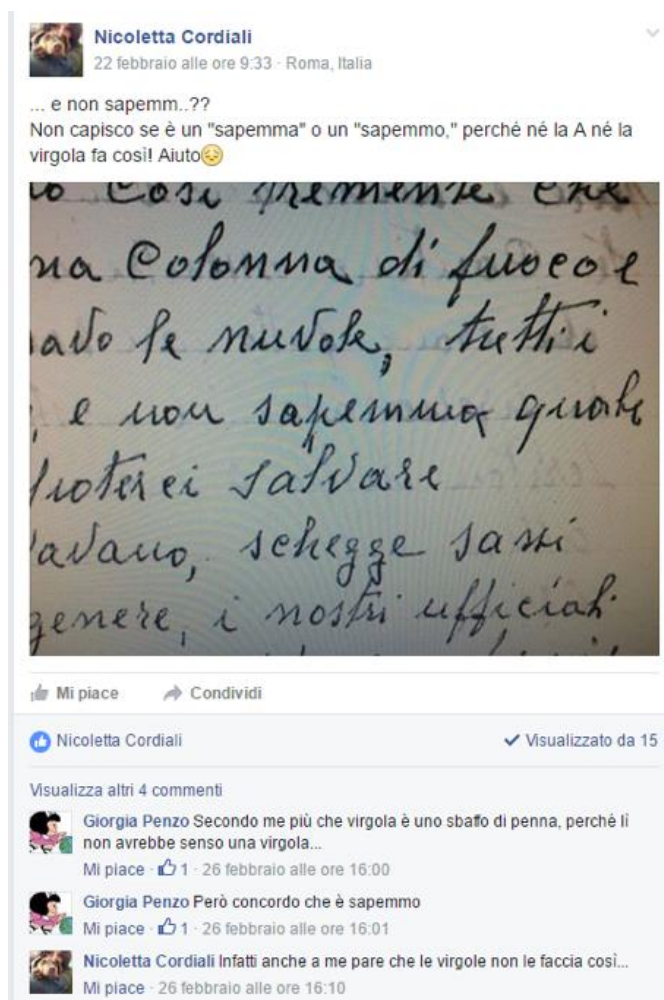 Nicoletta Cordiali
22 febbraio alle ore 9:33 · Roma, Italia
... e non sapemm..??
Non capisco se è un "sapemma" o un "sapemmo," perché né la A né la
virgola fa così! Aiuto😔
to così tremente che
na Colonna di fuoco e
avo le nuvole, tutti i
, e non sapemmo quale
poterci salvare
avano, schegge sassi
genere, i nostri ufficiali
Mi piace Condividi
Nicoletta Cordiali Visualizzato da 15
Visualizza altri 4 commenti
Giorgia Penzo Secondo me più che virgola è uno sbaffo di penna, perchè lì
non avrebbe senso una virgola...
Mi piace · 1 · 26 febbraio alle ore 16:00
Giorgia Penzo Però concordo che è sapemmo
Mi piace · 1 · 26 febbraio alle ore 16:01
Nicoletta Cordiali Infatti anche a me pare che le virgole non le faccia così...
Mi piace · 26 febbraio alle ore 16:10